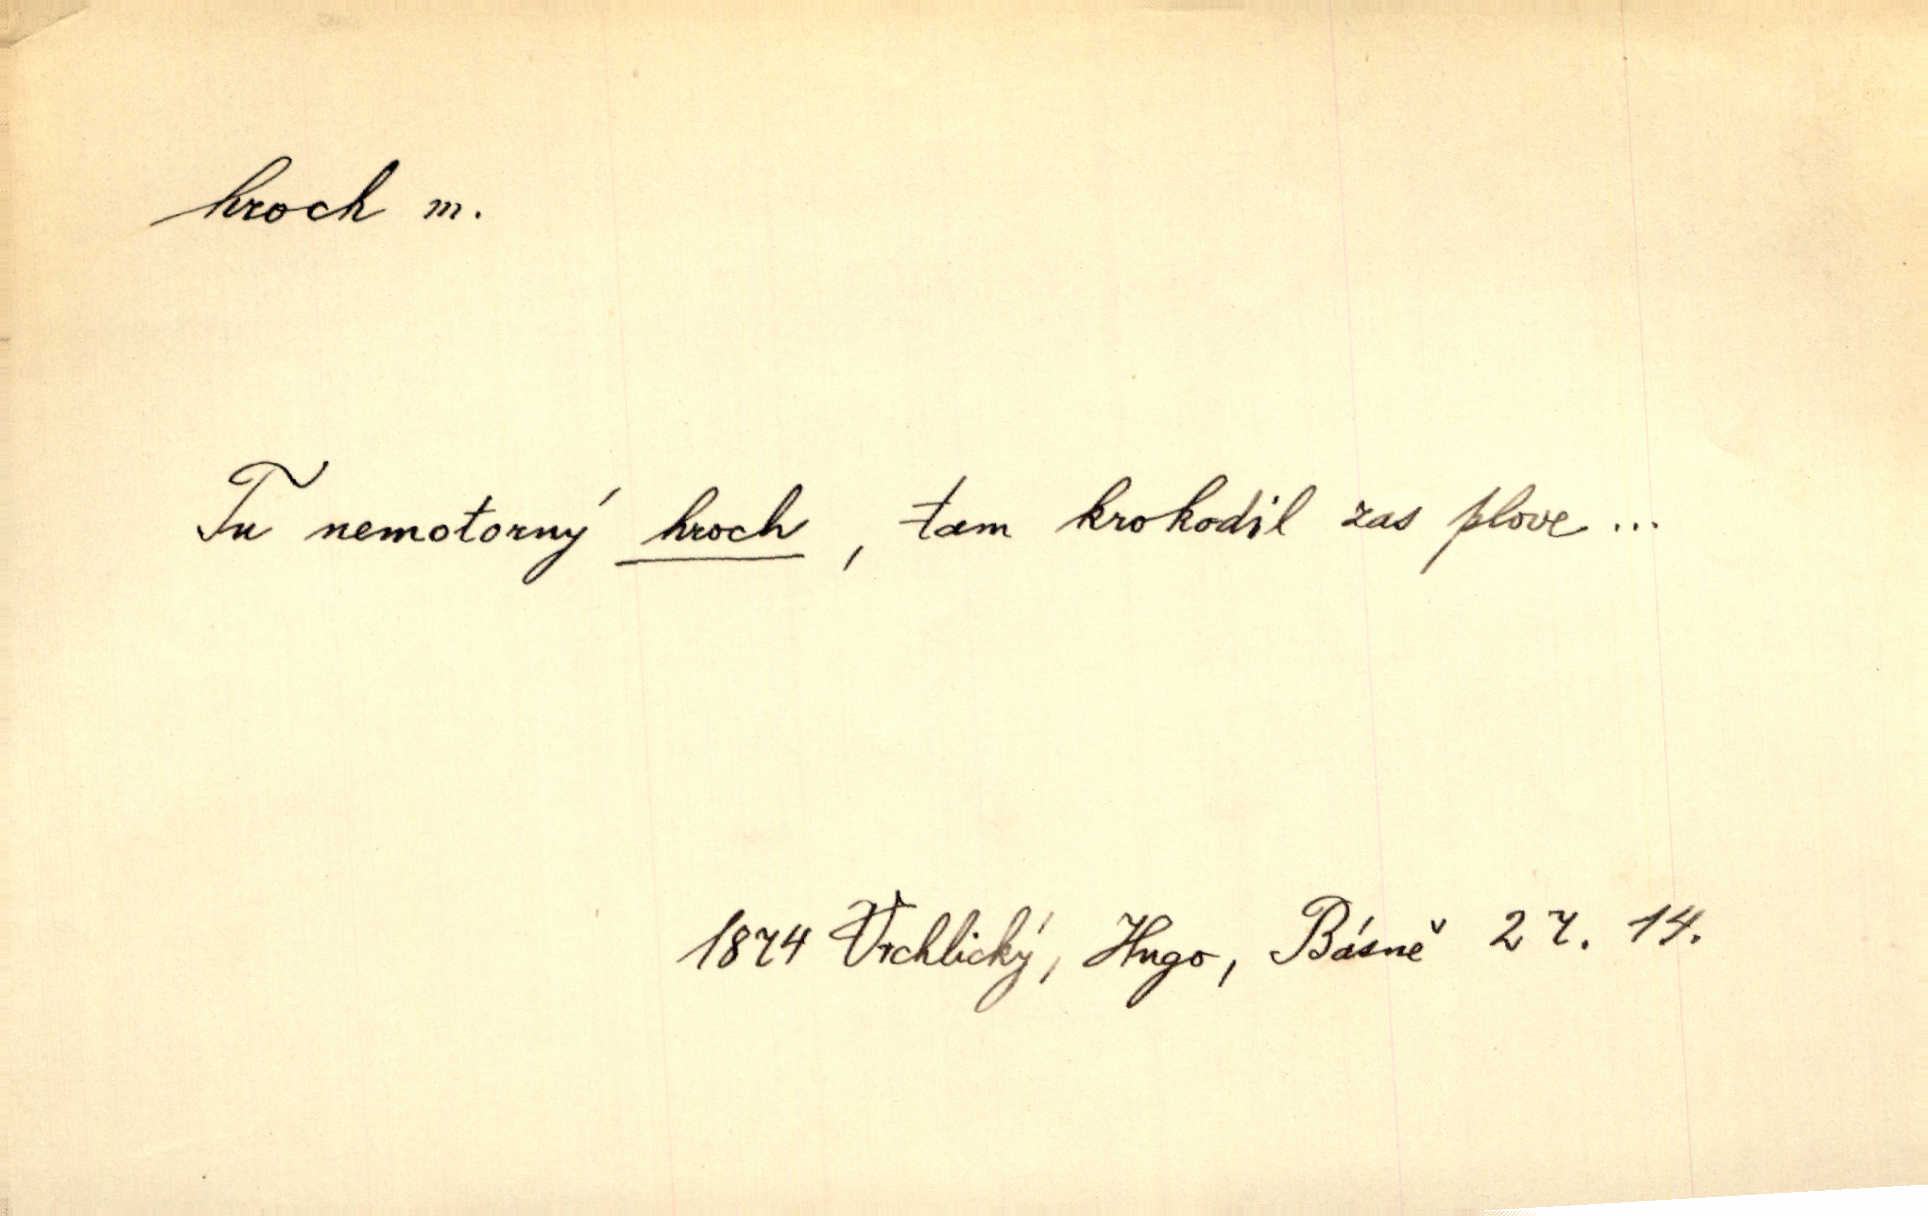 hroch m.
Tu nemotorný hroch, tam krokodil zas plove...
1874 Vrchlický, Hugo, Básně 27. 14.